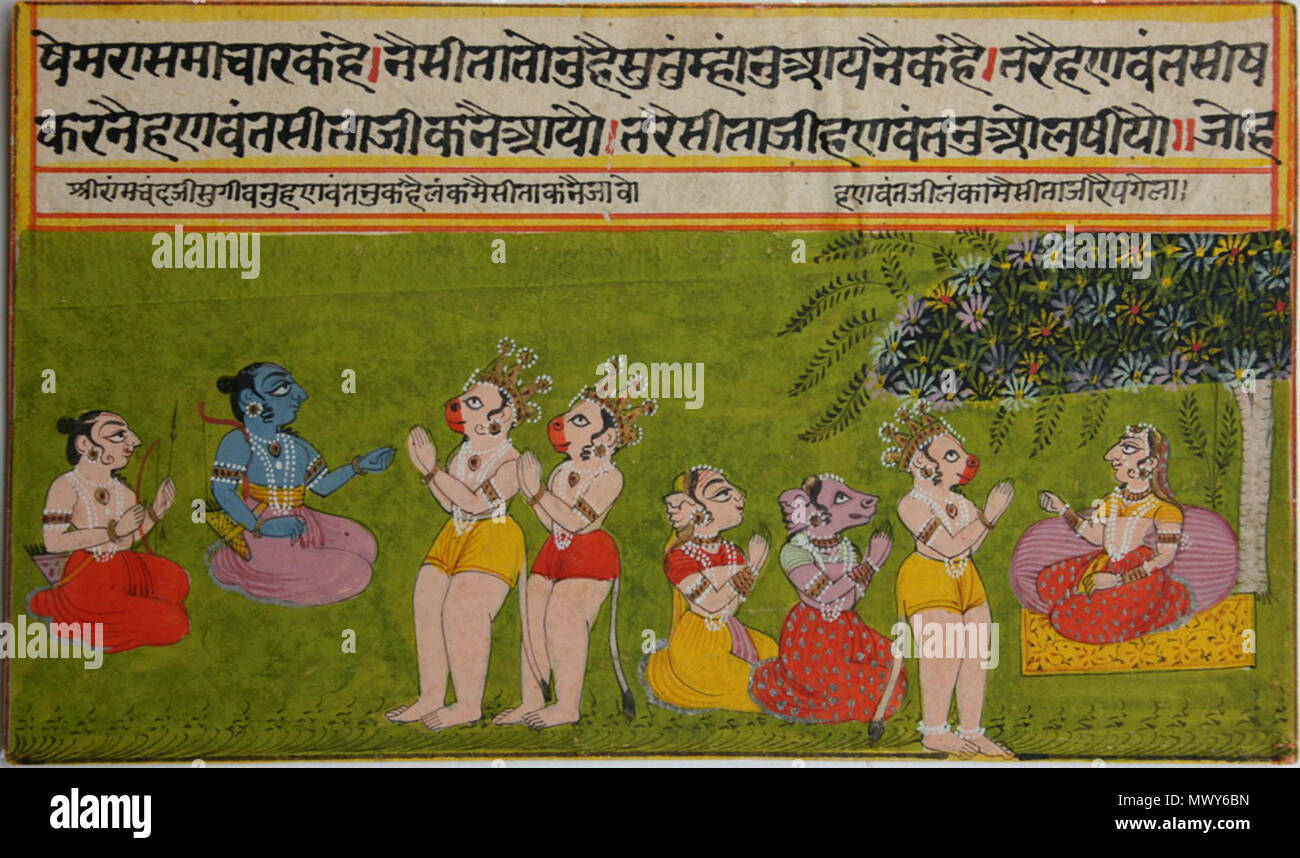 षेमरासमाचारकहै। नैसीतातोनुहैसुतुंम्हांनुआयनैकहै। तरैहणवंतसीष
करनैहणवंतसीताजीकनैआयौ। तरैसीताजीहणवंतनुओलषीयौ॥ जोह
श्रीरांमचंदजीसुगीवनुहणवंतनुकहैलंकमैसीताकनैजावो
हणवंतजीलंकामैसीताजीरैपगेला।
alamy
Image ID: MWY6BN
www.alamy.com